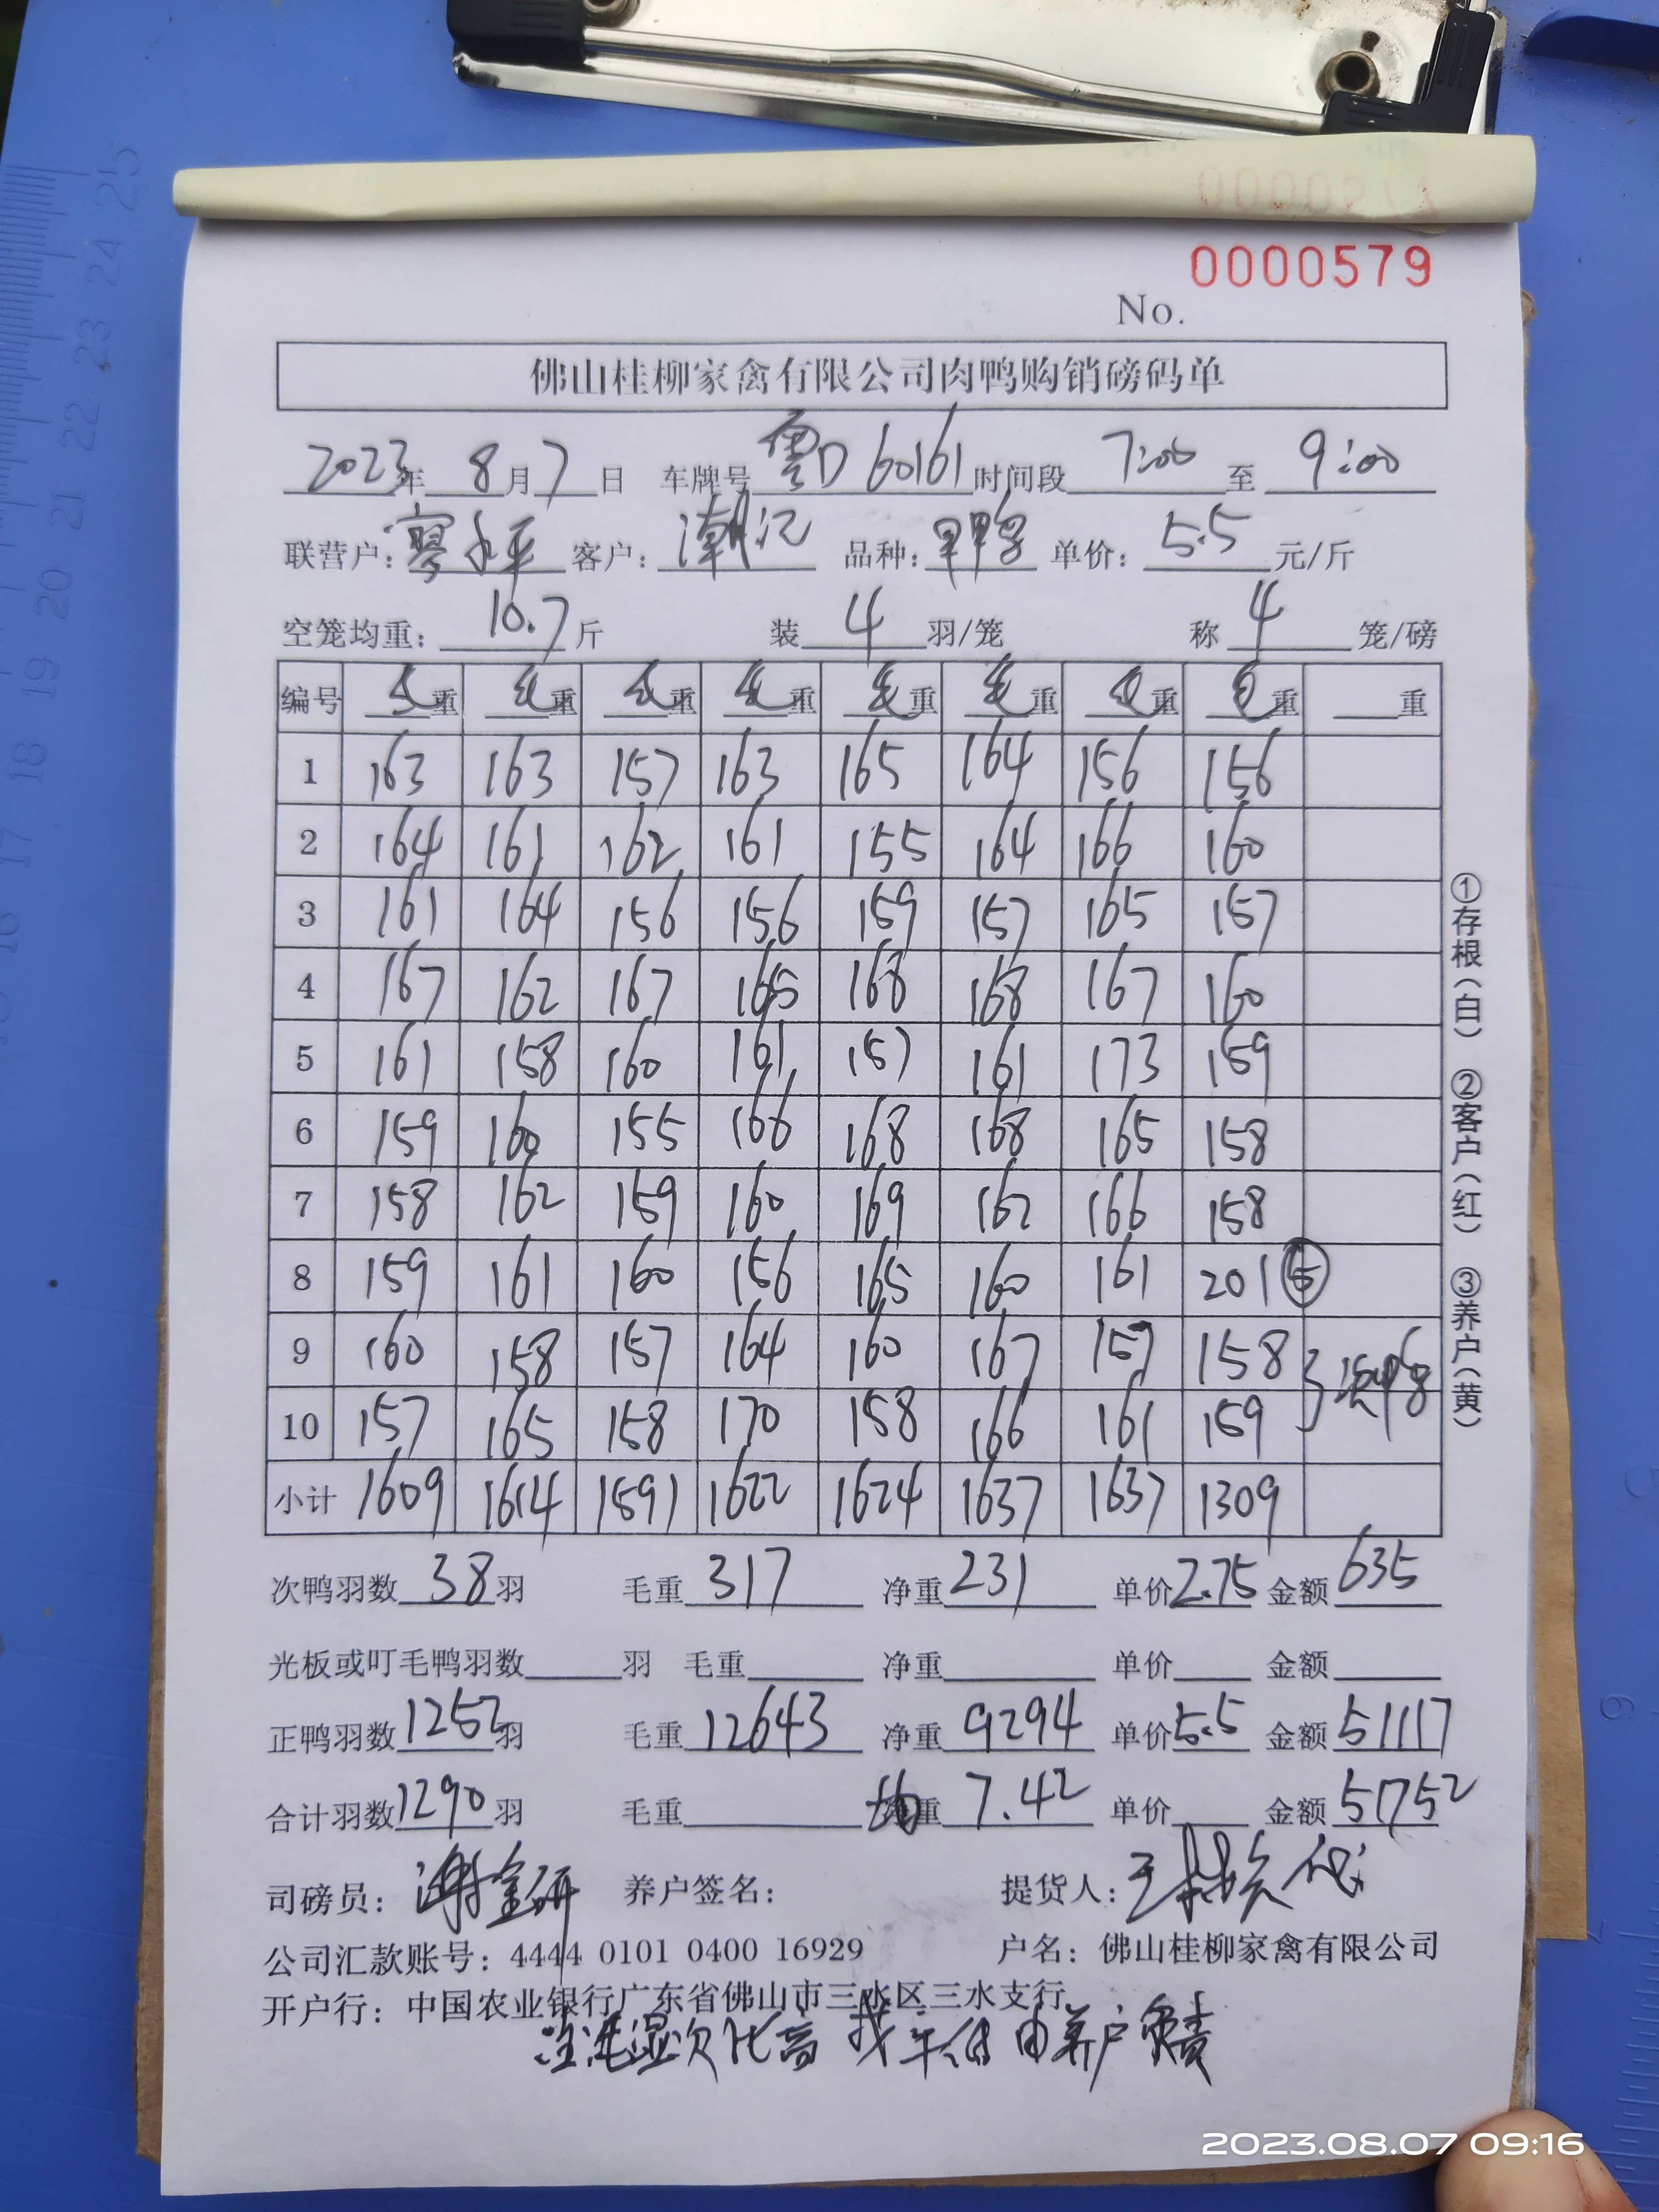 0000579
No.
佛山桂柳家禽有限公司肉鸭购销磅码单
2023年 8月7日 车牌号 粤D 60161 时间段 7:00 至 9:00
联营户：廖永平 客户：潮记 品种： 单价：5.5 元/斤
空笼均重：10.7斤 装 4 羽/笼 称 4 笼/磅
编号 毛重 毛重 毛重 毛重 毛重 毛重 毛重 毛重 重
1 163 163 157 163 165 164 156 156
2 164 161 162 161 155 164 166 160
3 161 164 156 156 159 157 165 157
4 167 162 167 165 168 168 167 160
5 161 158 160 161 157 161 173 159
6 159 160 155 166 168 168 165 158
7 158 162 159 160 169 162 166 158
8 159 161 160 156 165 160 161 201 ⑤
9 160 158 157 164 160 167 157 158
次鸭
10 157 165 158 170 158 166 161 159
小计 1609 1614 1591 1622 1624 1637 1637 1309
①存根（白） ②客户（红） ③养户（黄）
次鸭羽数 38羽 毛重 317 净重 231 单价 2.75 金额 635
光板或叮毛鸭羽数 羽 毛重 净重 单价 金额
正鸭羽数 1252羽 毛重 12643 净重 9294 单价 5.5 金额 51117
合计羽数 1290羽 毛重 均重 7.42 单价 金额 51752
司磅员：谢金研 养户签名： 提货人：
公司汇款账号：4444 0101 0400 16929 户名：佛山桂柳家禽有限公司
开户行：中国农业银行广东省佛山市三水区三水支行
注：毛湿次比高 由养户负责
2023.08.07 09:16